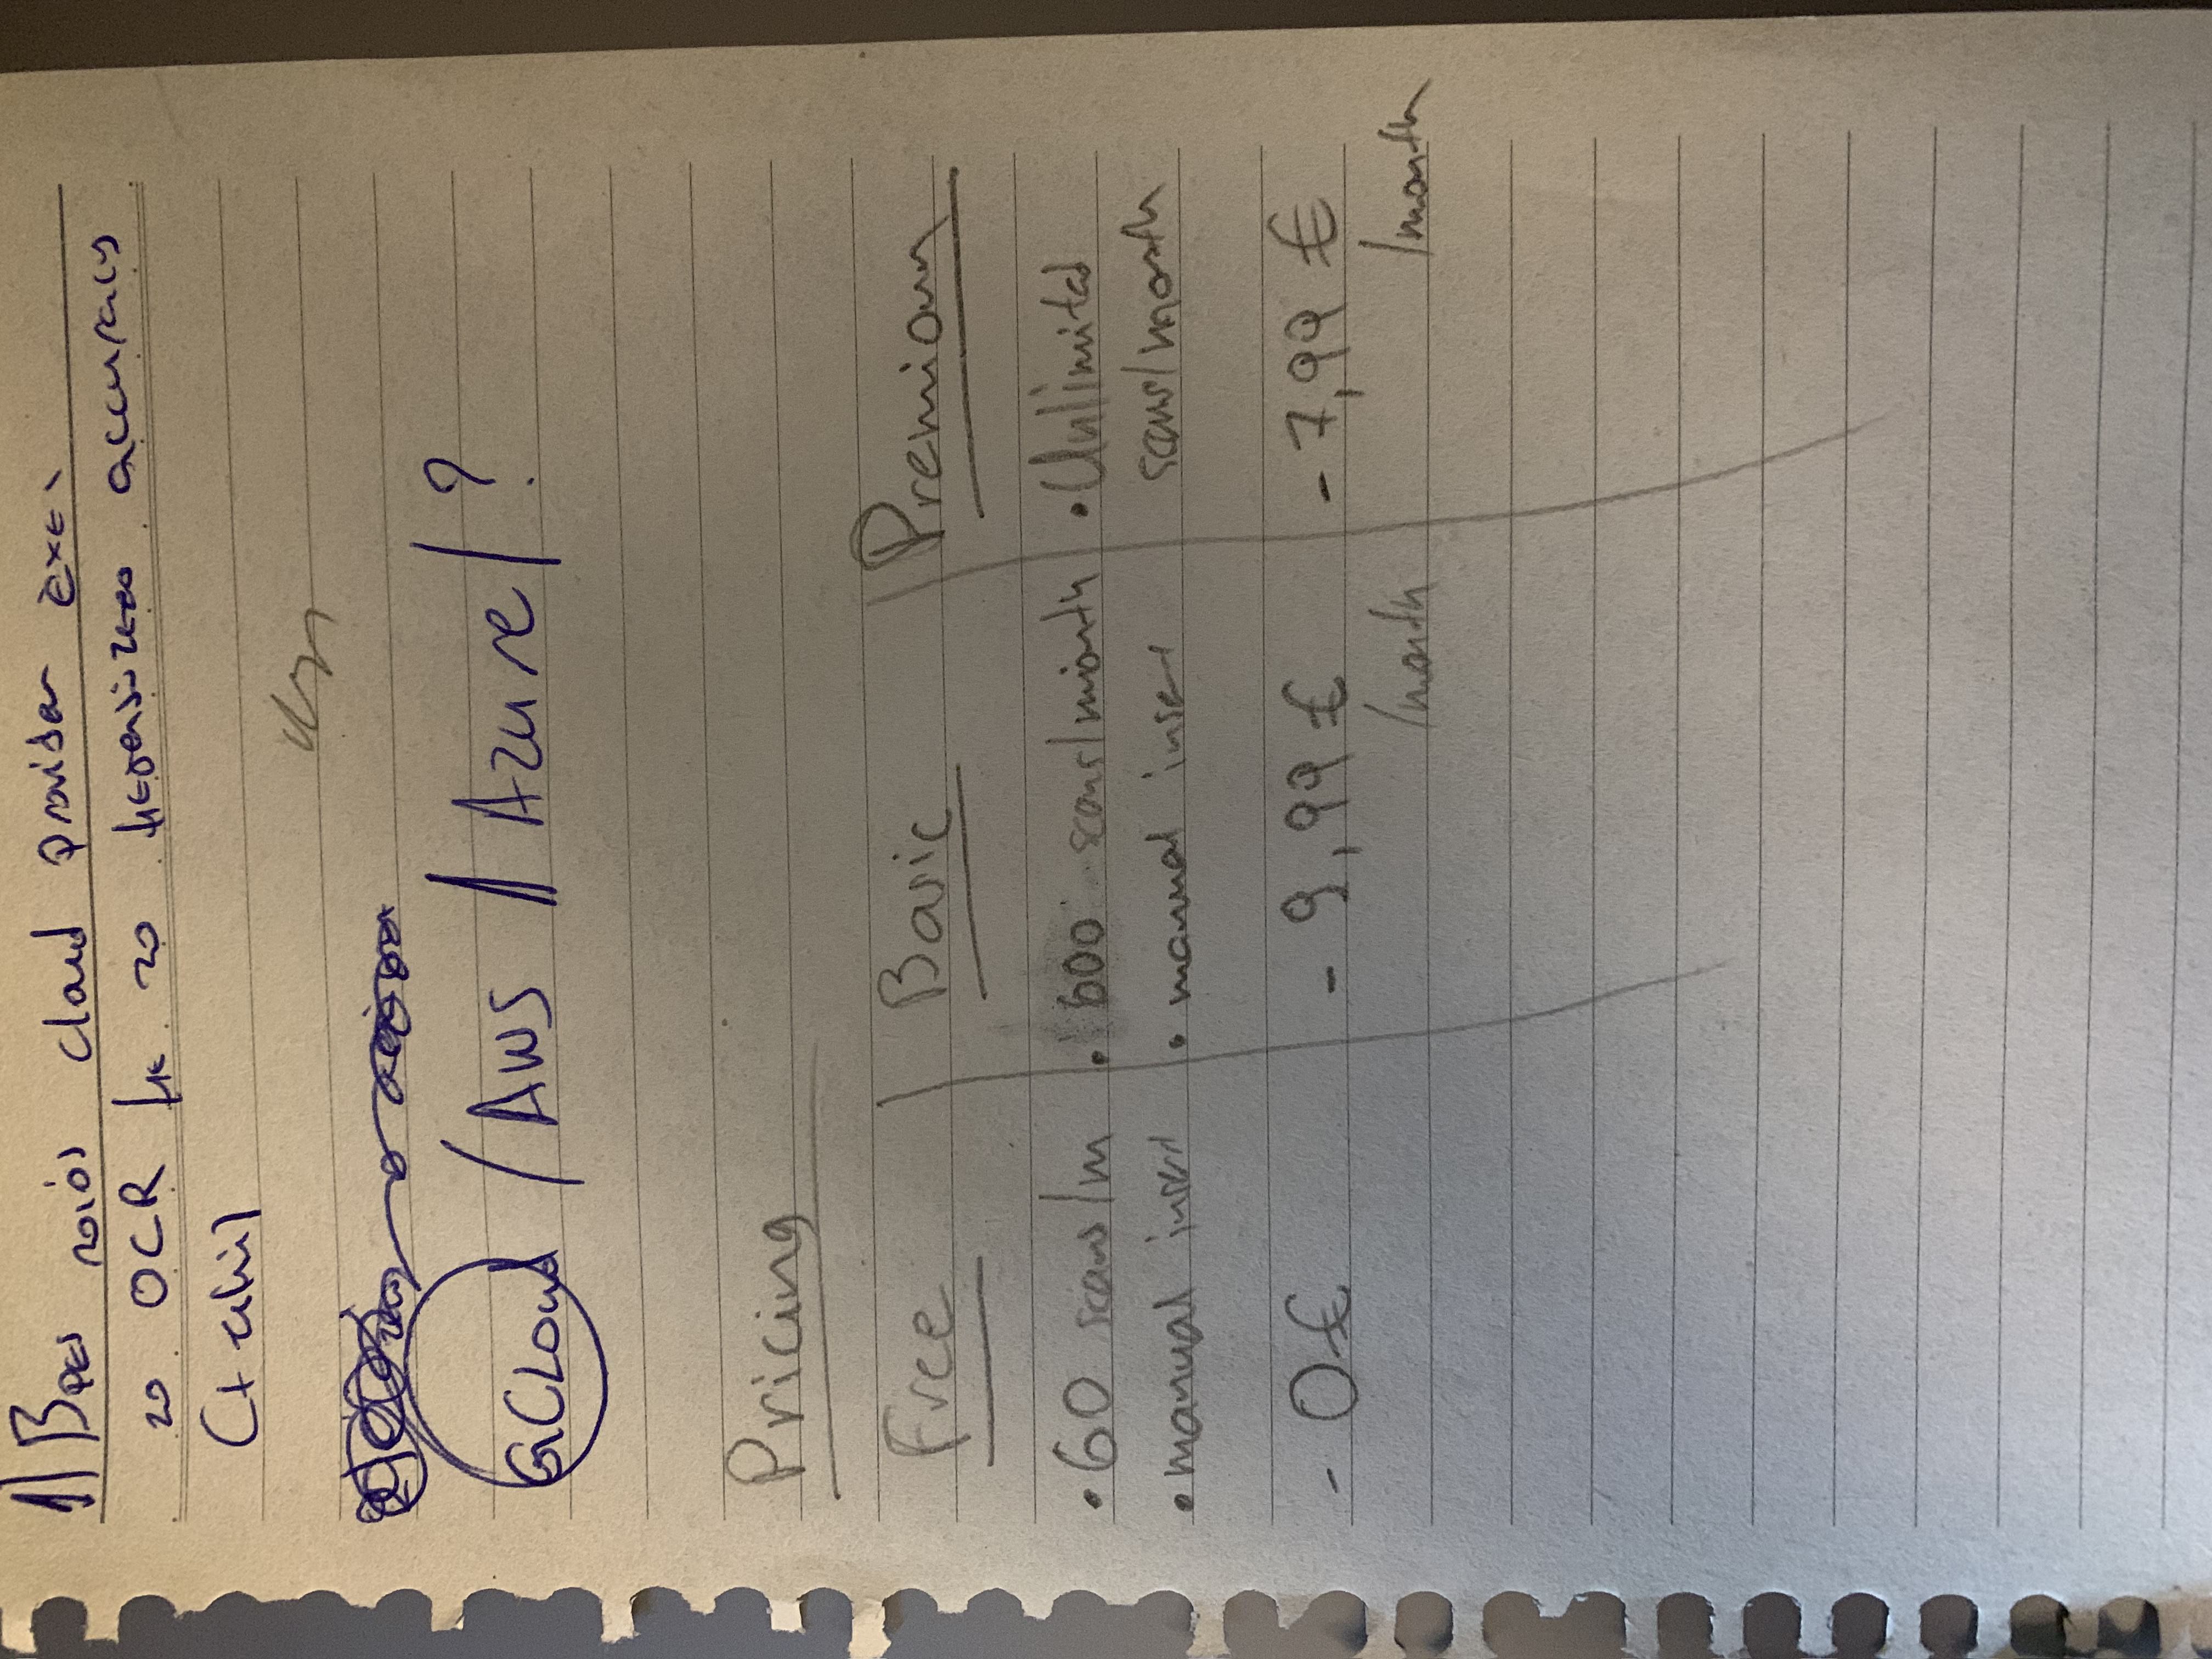 1) Βρες ποιός cloud provider έχει
το OCR με το μεγαλύτερο accuracy
(+ τιμή)
GCloud / AWS // Azure / ?
Pricing
Free | Basic | Premioum
• 60 scans/m • 600 scans/month • Unlimited
• manual insert • manual insert scans/month
- 0€ - 9,99 € - 7,99 €
/month /month